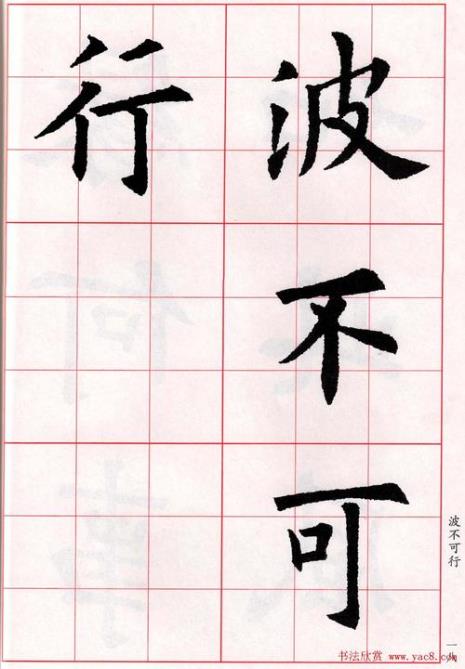 波不可
行
波不可行
一八
书法欣赏 www.yac8.com